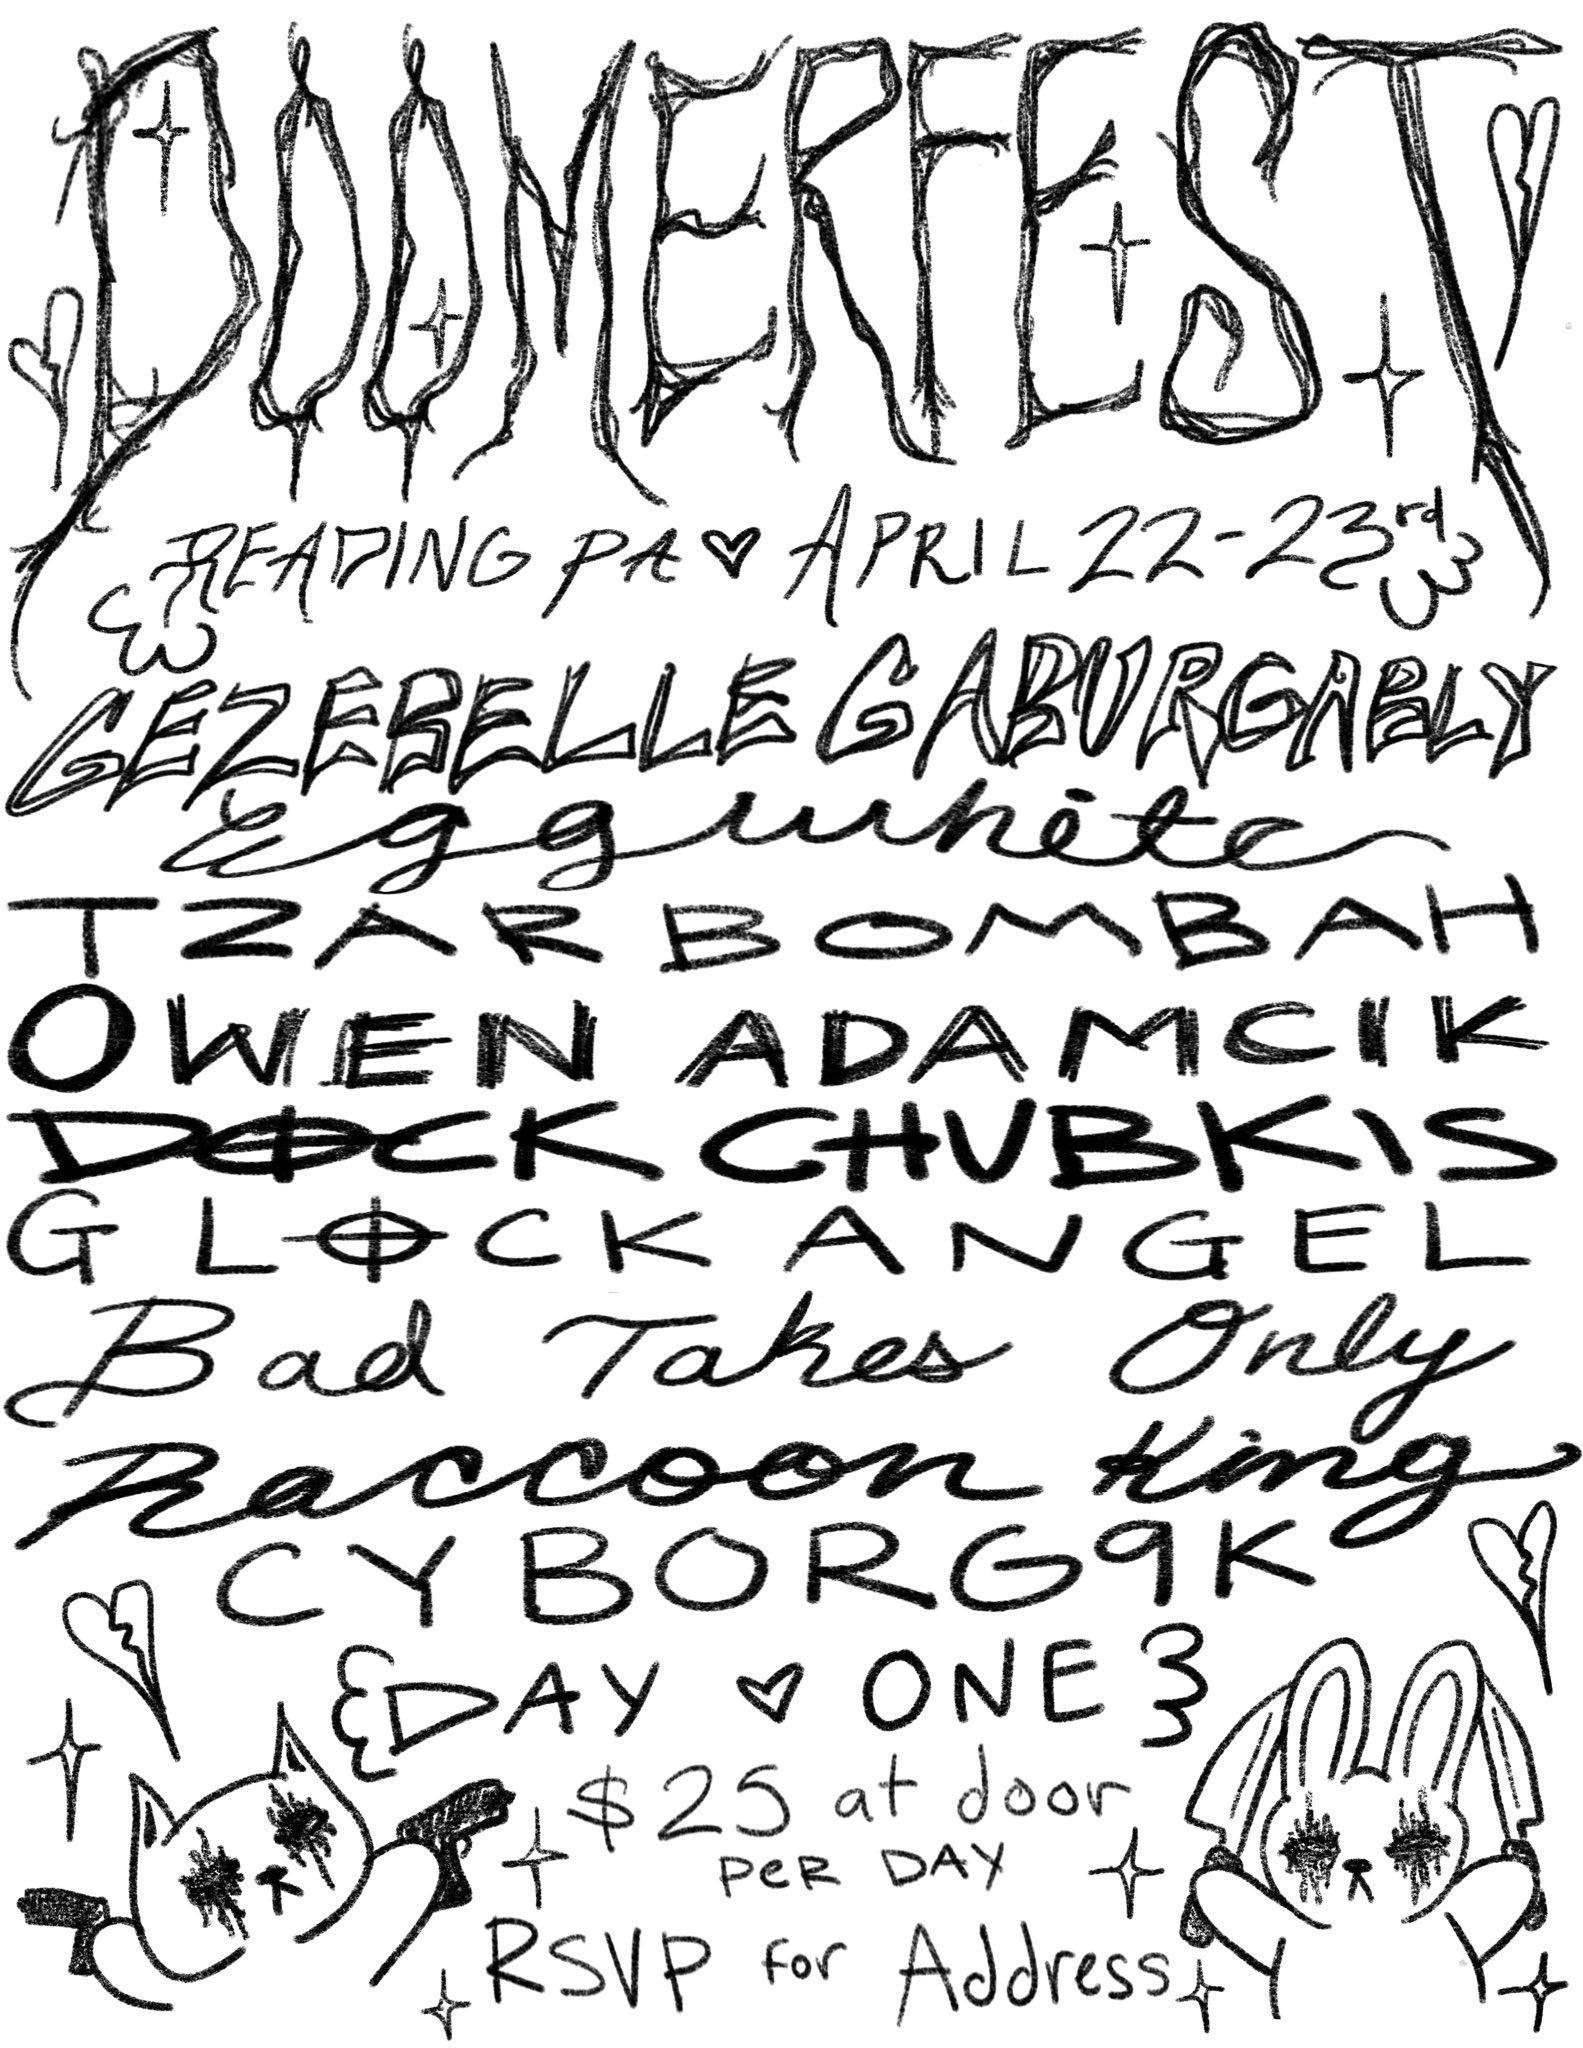 DOOMERFEST
READING PA ♡ APRIL 22-23rd
GEZEBELLE GABURGABLY
Eggwhite
TZAR BOMBAH
OWEN ADAMCIK
DØCK CHUBKIS
GLØCK ANGEL
Bad Takes Only
Raccoon King
CYBORG9K
{DAY ♡ ONE}
$25 at door
PeR DAY
RSVP for Address